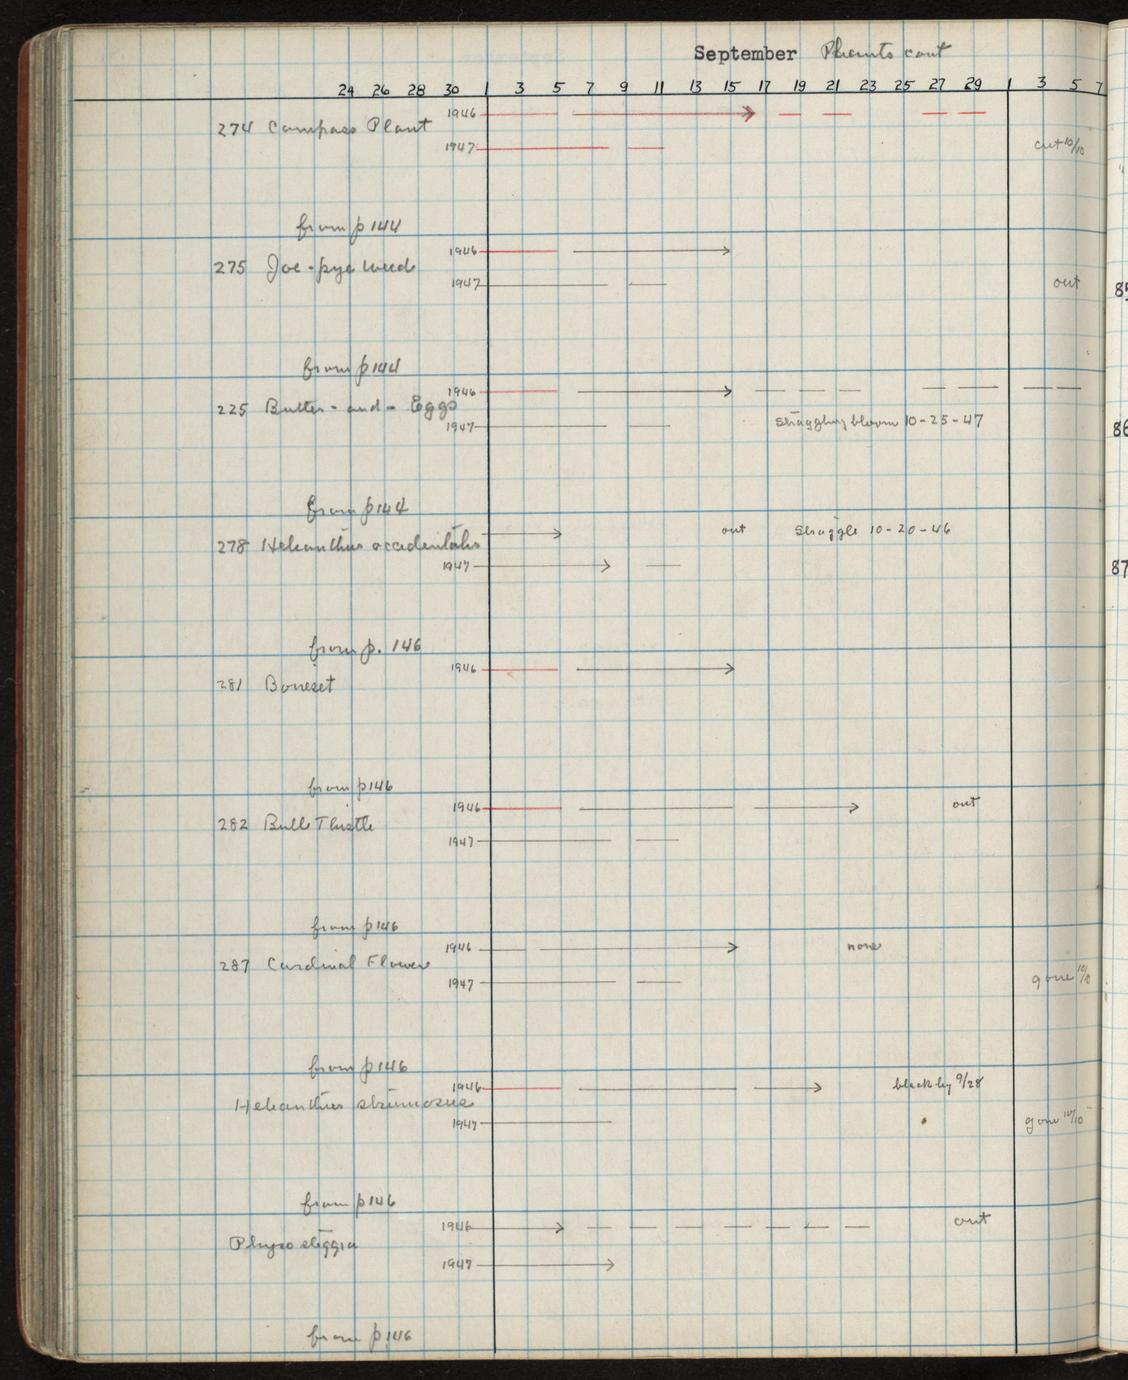 September Plants cont
24 26 28 30 1 3 5 7 9 11 13 15 17 19 21 23 25 27 29 1 3 5 7
1946
274 Compass Plant
1947 out 10/10
from p 144
1946
275 Joe-pye Weed
1947 out
85
from p 144
1946
225 Butter-and-Eggs
1947 straggling bloom 10-25-47
86
from p 144
out straggle 10-20-46
278 Helianthus occidentalis
1947
87
from p. 146
1946
281 Boneset
from p 146
1946 out
282 Bull Thistle
1947
from p 146
1946 none
287 Cardinal Flower
1947 gone 10/10
from p 146
1946 black by 9/28
Helianthus strumosus
1947 gone 10/10
from p 146
1946 out
Physosteggia
1947
from p 146